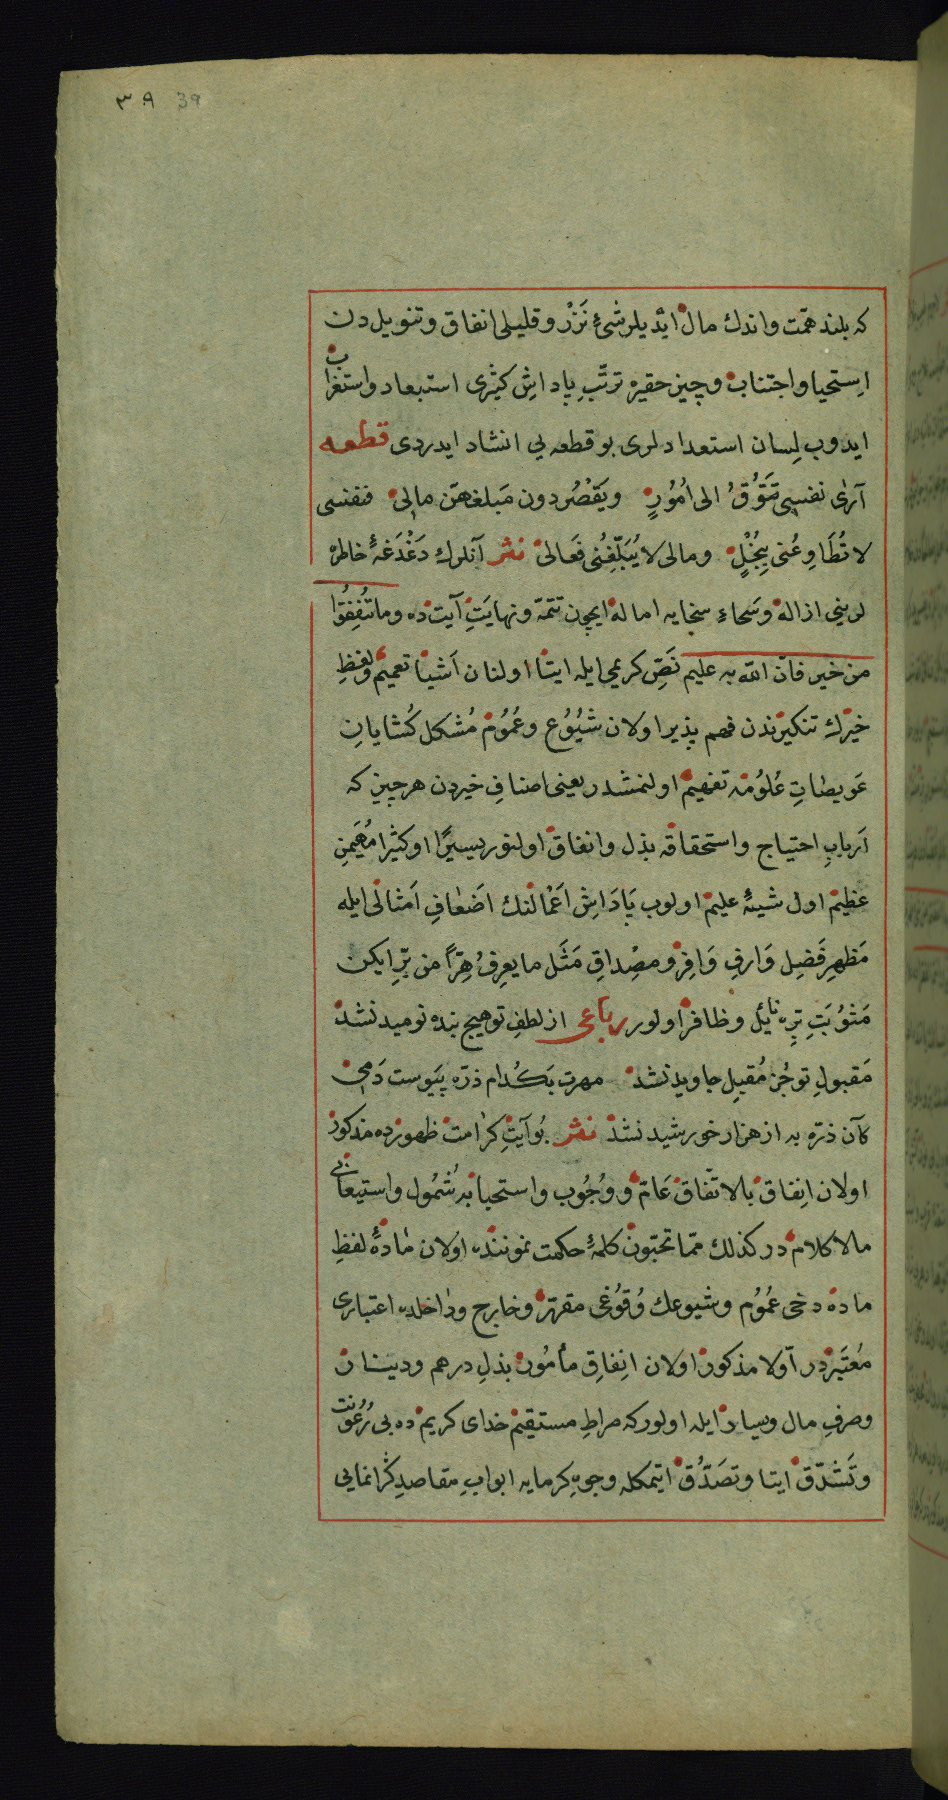 ٣٩ 39
كه بلند همّت واندك مال ايديلر شئ نَزْر و قليلى انفاق و تنويل دن
اِستحيا و اجتناب و چيز حقيره ترتّبِ پاداشِ كثيرى استبعاد و استغراب
ايدوب لِسان استعدادلرى بو قطعه يى انشاد ايدردى قطعه
آرى نفسى تَتُوقُ الى اُمُورٍ ويَقْصُر دون مَبلغهنّ مالى فنفسى
لا تُطَاوِعُنى بِبُخْلٍ ومالى لا يُبَلِّغُنى فَعالى نثر آنلرك دَغْدَغۀ خاطره
لرينى ازاله و سَحاءِ سخايه اماله ايچون تتمّه و نهايَتِ آيت ده وما تُنفِقُوا
من خير فانّ الله به عليم نَصِّ كريمى ايله ايتا اولنان اَشيا تعميم و لفظِ
خيرك تنكيرندن فهم پذير اولان شيُوُع و عُمُوم مُشكل كُشايانِ
عَويصاتِ عُلوُمه تفهيم اولنمشدر يعنى اصنافِ خيردن هر چيز كه
اَربابِ احتياج و استحقاقه بذل و انفاق اولنور يسيرًا او كثيرا مُهَيمنِ
عظيم اول شيئه عليم اولوب پَادَاشِ اَعْمالنك اَضعَافِ اَمثالى ايله
مَظهرِ فَضلِ وَارفِ وَافِر و مصْداقِ مَثَل ما يعرِفُ هِرًّا من بِرّ ايكن
مَثوُبَتِ بِرّه نايل و ظافر اولور رباعى از لطفِ تو هيچ بنده نوميد نشد
مَقبولِ تو جُز مُقبلِ جاويد نشد مهرت بكدام ذرّه پيَوست دَمى
كآن ذرّه به از هزار خورشيد نشد نثر بُو آيتِ كرامت ظهورده مذكور
اولان اِنفاق بالاتّفاق عَامّ و وُجُوب و استحبابه شُمُول و استيعابى
مالا كلام در كذلك ممّا تحبّون كلمۀ حكمت نموننده اولان مادّۀ لفظِ
ماده دخى عُمُوم و شيوعك وُقوُعى مقرّر و خارج و داخلده اعتبارى
مُعتَبَر در اَوّلا مذكور اولان اِنفاقِ مأمُور بذلِ درهم و دينار
و صرفِ مال و يسار ايله اولور كه صراطِ مستقيم خداى كريم ده بى رُعُونت
و تَشدّق ايتا و تصَدُّق ايتمكله وجوهِ كرمايه ابوابِ مقاصدِ كرانمايى